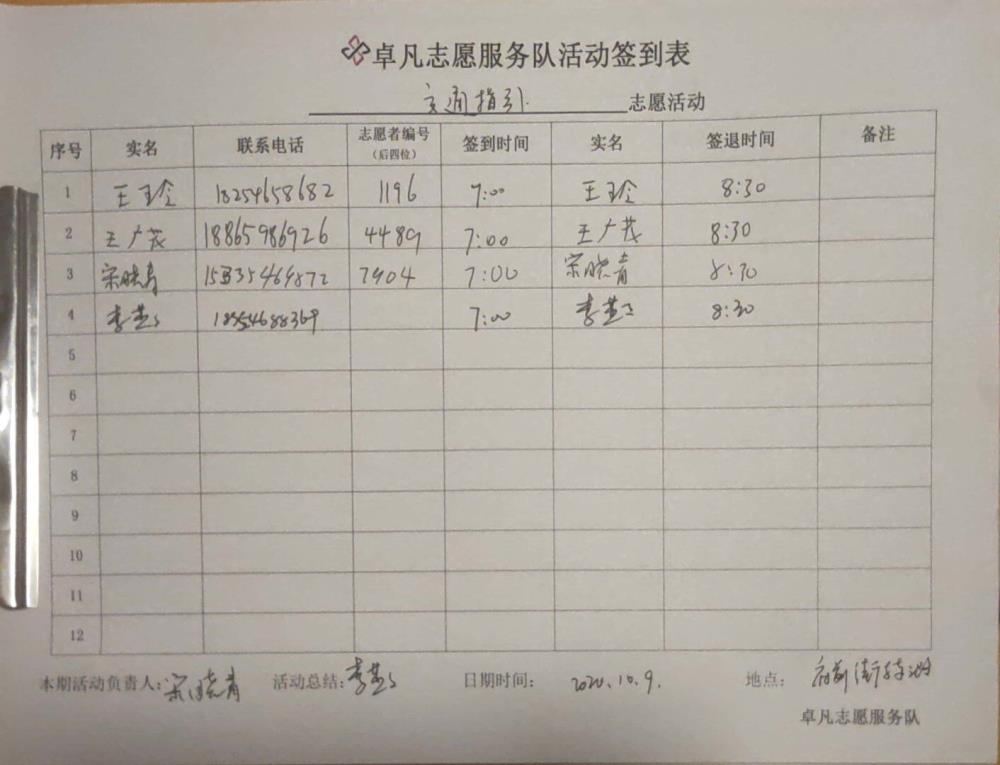 卓凡志愿服务队活动签到表
交通指引 志愿活动
序号 实名 联系电话 志愿者编号 (后四位) 签到时间 实名 签退时间 备注
1 王玲 18254658682 1196 7:00 王玲 8:30
2 王广茂 18865986926 4489 7:00 王广茂 8:30
3 宋晓青 7904 7:00 宋晓青 8:30
4 7:00 8:30
5
6
7
8
9
10
11
12
本期活动负责人:宋晓青 活动总结: 日期时间: 2020.10.9. 地点: 府前街
卓凡志愿服务队